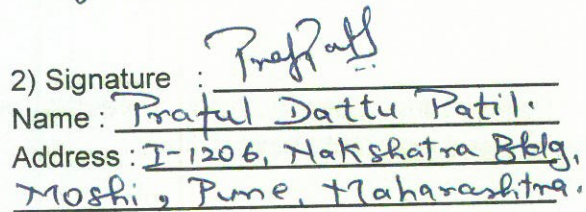 2) Signature :
Name : Praful Dattu Patil.
Address : I-1206, Nakshatra Bldg,
Moshi, Pune, Maharashtra.